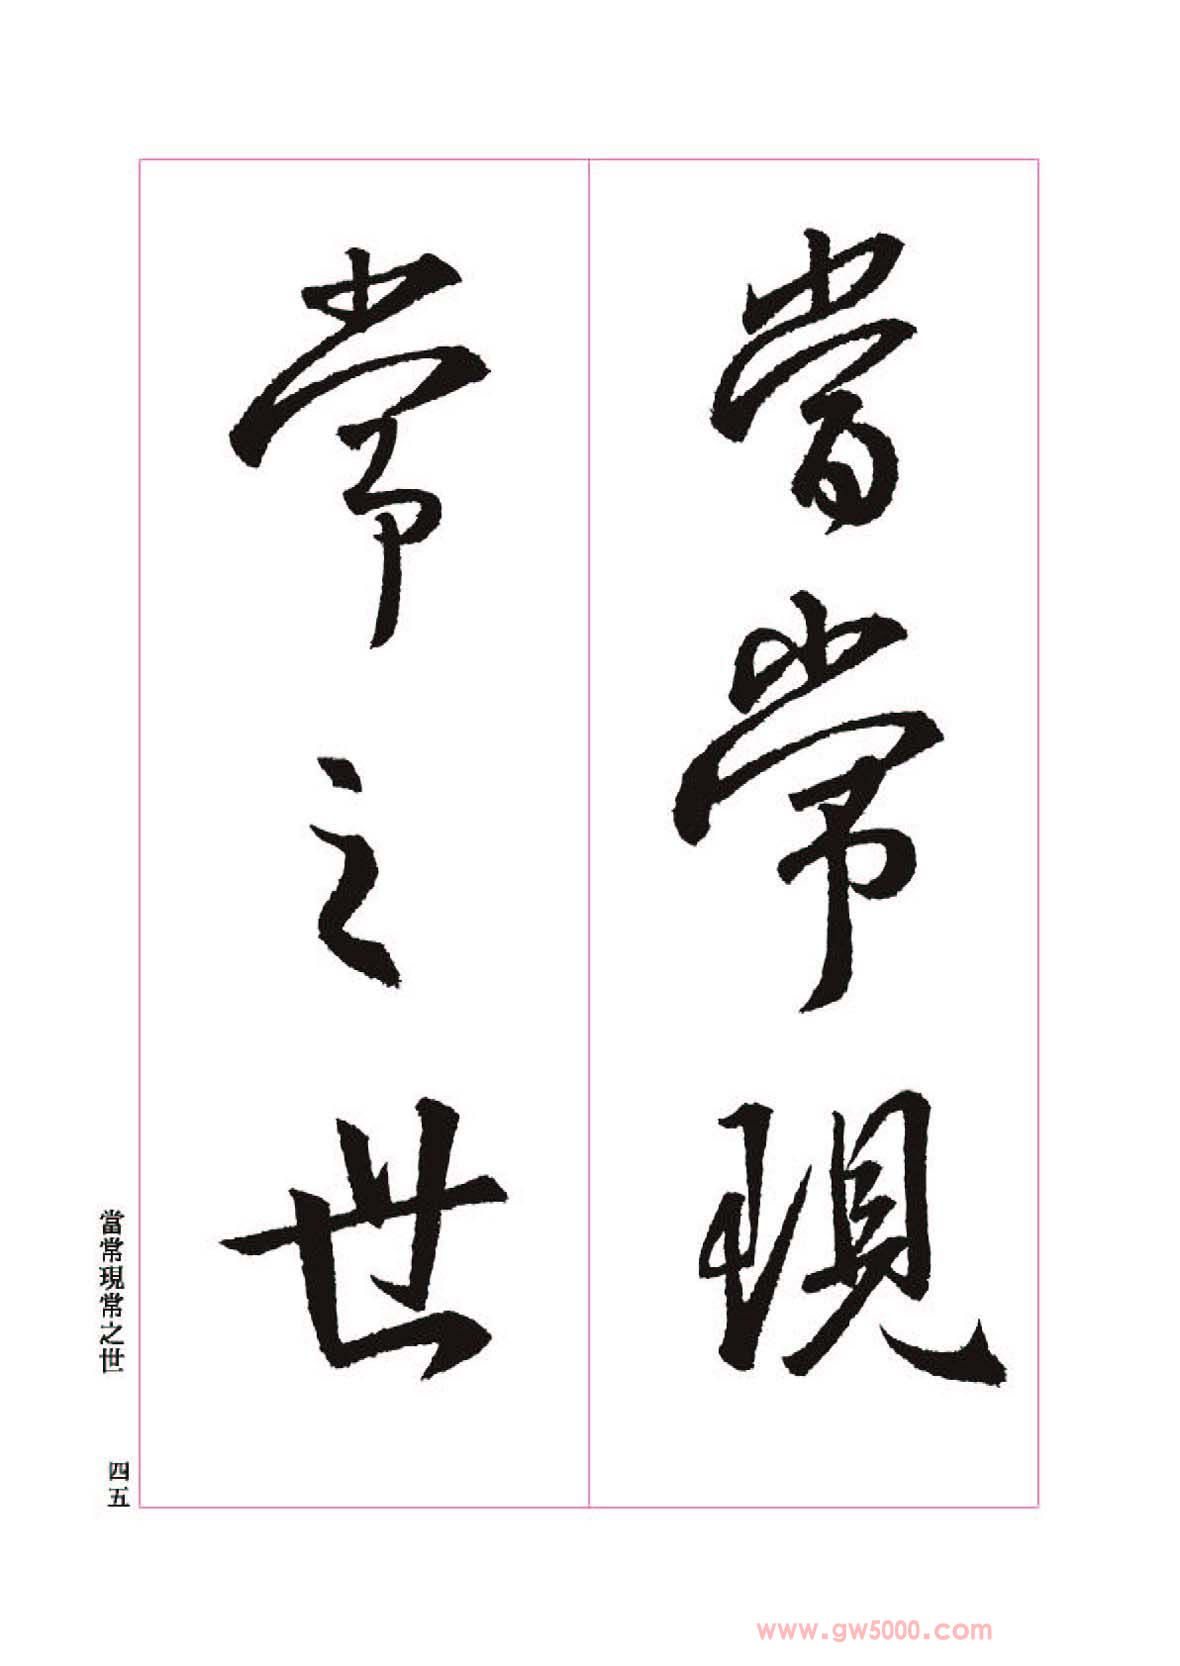 當常現
常之世
當常現常之世
四五
www.gw5000.com